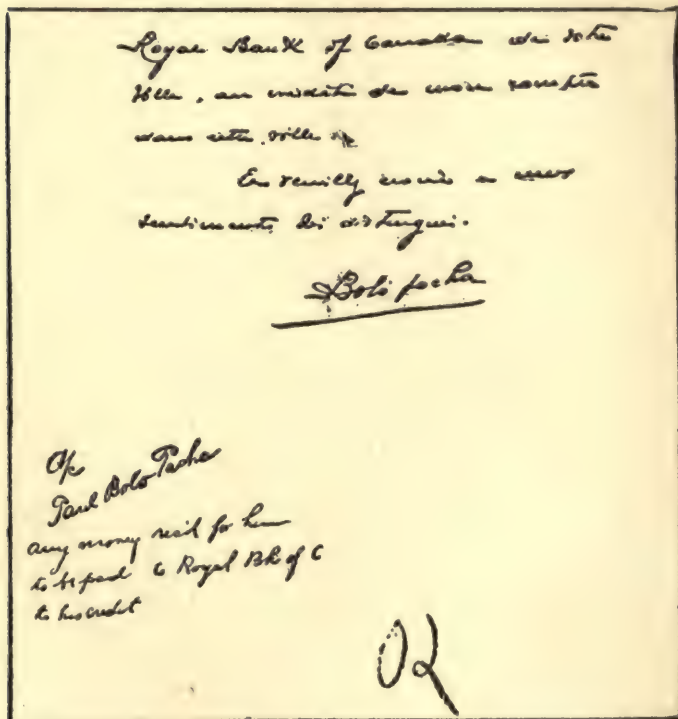 Royal Bank of Canada de votre
Ville, au crédit de mon compte
dans cette ville.
En veuillez
sentiments les distingués.
Bolo pacha
a/c
Paul Bolo Pacha
any money recd for him
to be paid to Royal Bk of C
to his credit
OK